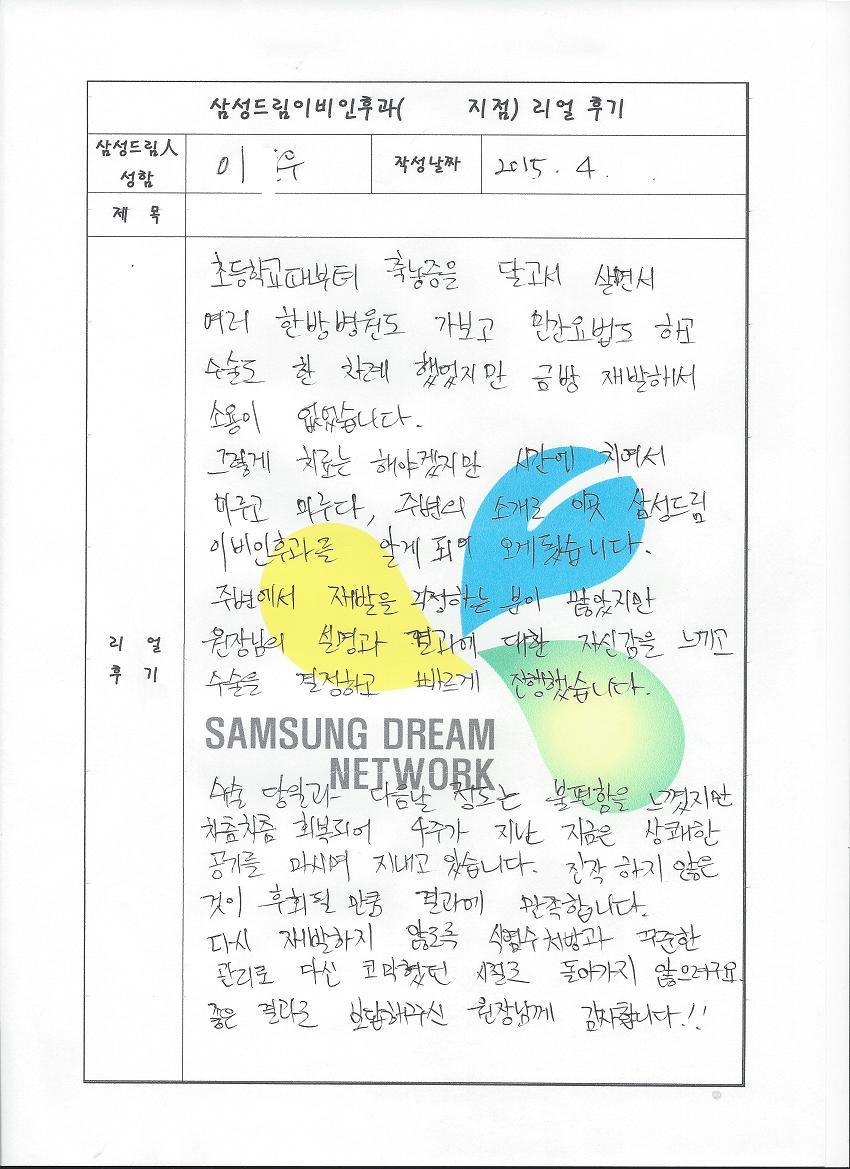 삼성드림이비인후과( 지점) 리얼 후기
삼성드림人
성함
이 우
작성날짜
2015. 4. .
제 목
초등학교때부터 축농증을 달고서 살면서
여러 한방병원도 가보고 민간요법도 하고
수술도 한 차례 했었지만 금방 재발해서
소용이 없었습니다.
그렇게 치료는 해야겠지만 시간에 치여서
미루고 미루다, 주변의 소개로 이곳 삼성드림
이비인후과를 알게 되어 오게됐습니다.
주변에서 재발을 걱정하는 분이 많았지만
원장님의 설명과 결과에 대한 자신감을 느끼고
수술을 결정하고 빠르게 진행했습니다.
리 얼
후 기
SAMSUNG DREAM
NETWORK
수술 당일과 다음날 정도는 불편함을 느꼈지만
차츰차츰 회복되어 4주가 지난 지금은 상쾌한
공기를 마시며 지내고 있습니다. 진작 하지 않은
것이 후회될 만큼 결과에 만족합니다.
다시 재발하지 않도록 식염수처방과 꾸준한
관리로 다신 코막혔던 시절로 돌아가지 않으려구요.
좋은 결과로 보답해주신 원장님께 감사합니다!!